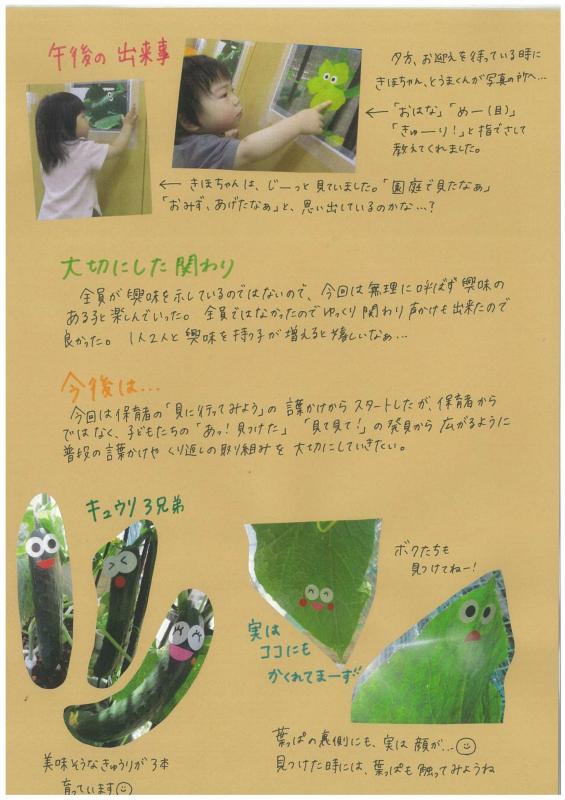 午後の出来事
夕方、お迎えを待っている時に
きほちゃん、とうまくんが写真の所へ…
←「おはな」「めー(目)」
「きゅーり!」と指でさして
教えてくれました。
← きほちゃんは、じーっと見ていました。「園庭で見たなぁ」
「おみず、あげたなぁ」と、思い出しているのかな…?
大切にした関わり
全員が興味を示しているのではないので、今回は無理に呼ばず興味の
ある子と楽しんでいった。全員ではなかったのでゆっくり関わり声かけも出来たので
良かった。1人2人と興味を持つ子が増えると嬉しいなぁ…
今後は…
今回は保育者の「見に行ってみよう」の言葉かけからスタートしたが、保育者から
ではなく、子どもたちの「あっ!見つけた」「見て見て!」の発見から広がるように
普段の言葉かけやくり返しの取り組みを大切にしていきたい。
キュウリ3兄弟
ボクたちも
見つけてねー!
実は
ココにも
かくれてまーす!!
美味そうなきゅうりが3本
育っています
葉っぱの裏側にも、実は顔が…
見つけた時には、葉っぱも触ってみようね